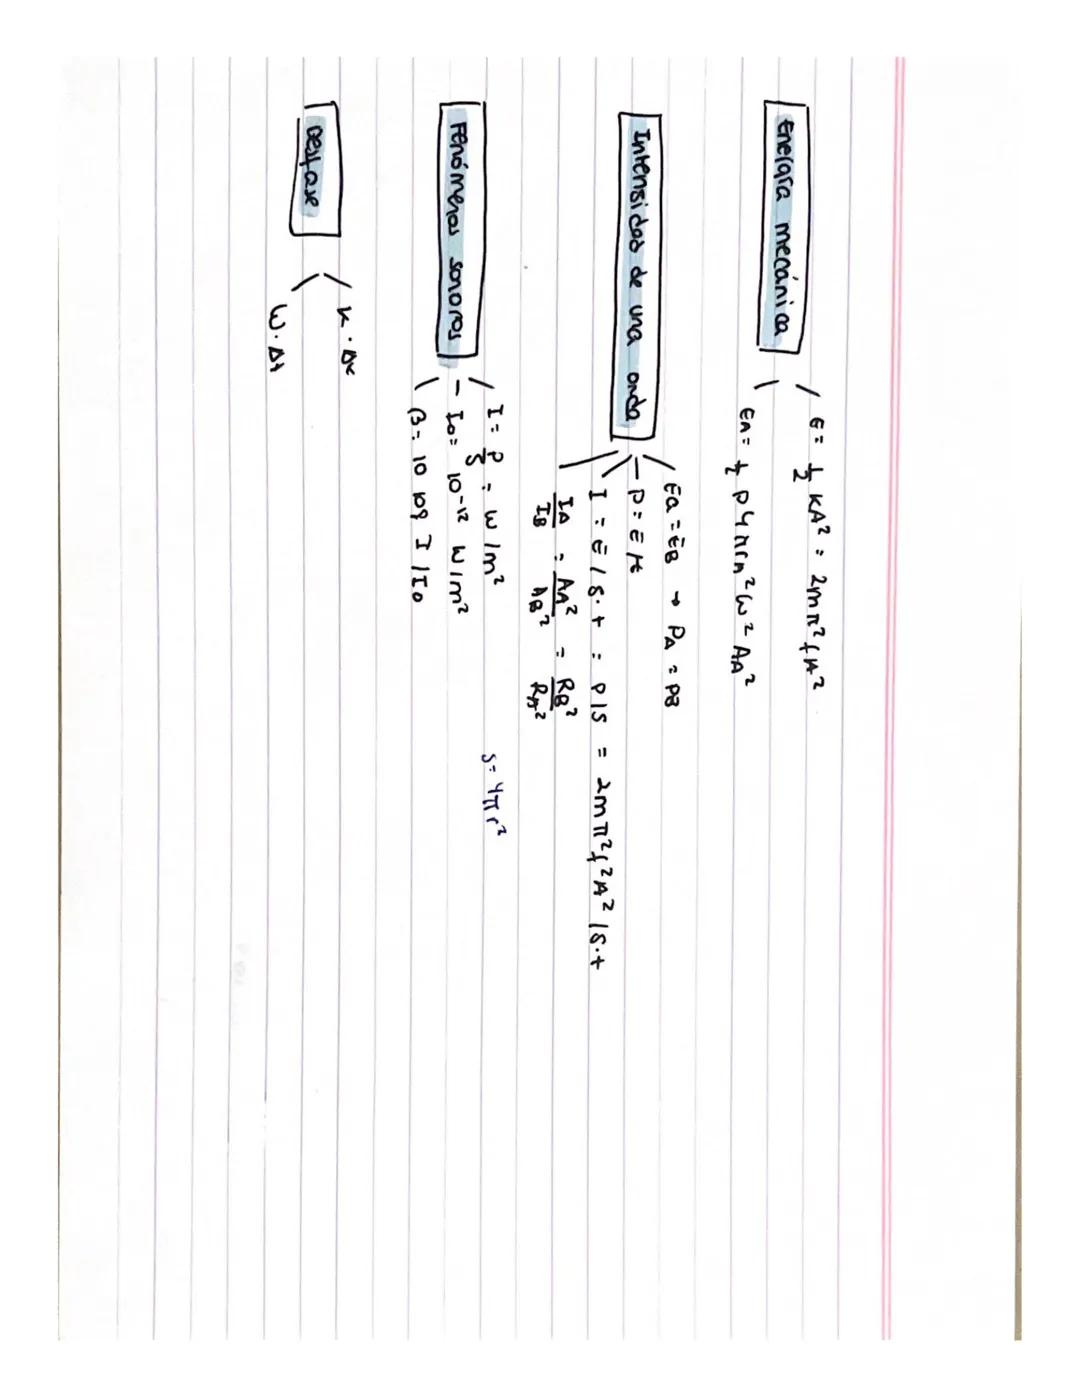 Energía mecánica
E = 1/2 KA² = 2mπ²fA²
EA = 1/2 ρ4πrA²ω²AA²
Intensidad de una onda
Ea = EB → PA = PB
P = E/t
I = E/S·t = P/S = 2mπ²f²A²/S·t
IA/IB = AA²/AB² = RB²/RA²
Fenómenos sonoros
I = P/S = W/m²
S = 4πr²
I0 = 10-12 W/m²
β = 10 log I/I0
Desfase
K·Δx
ω·Δt